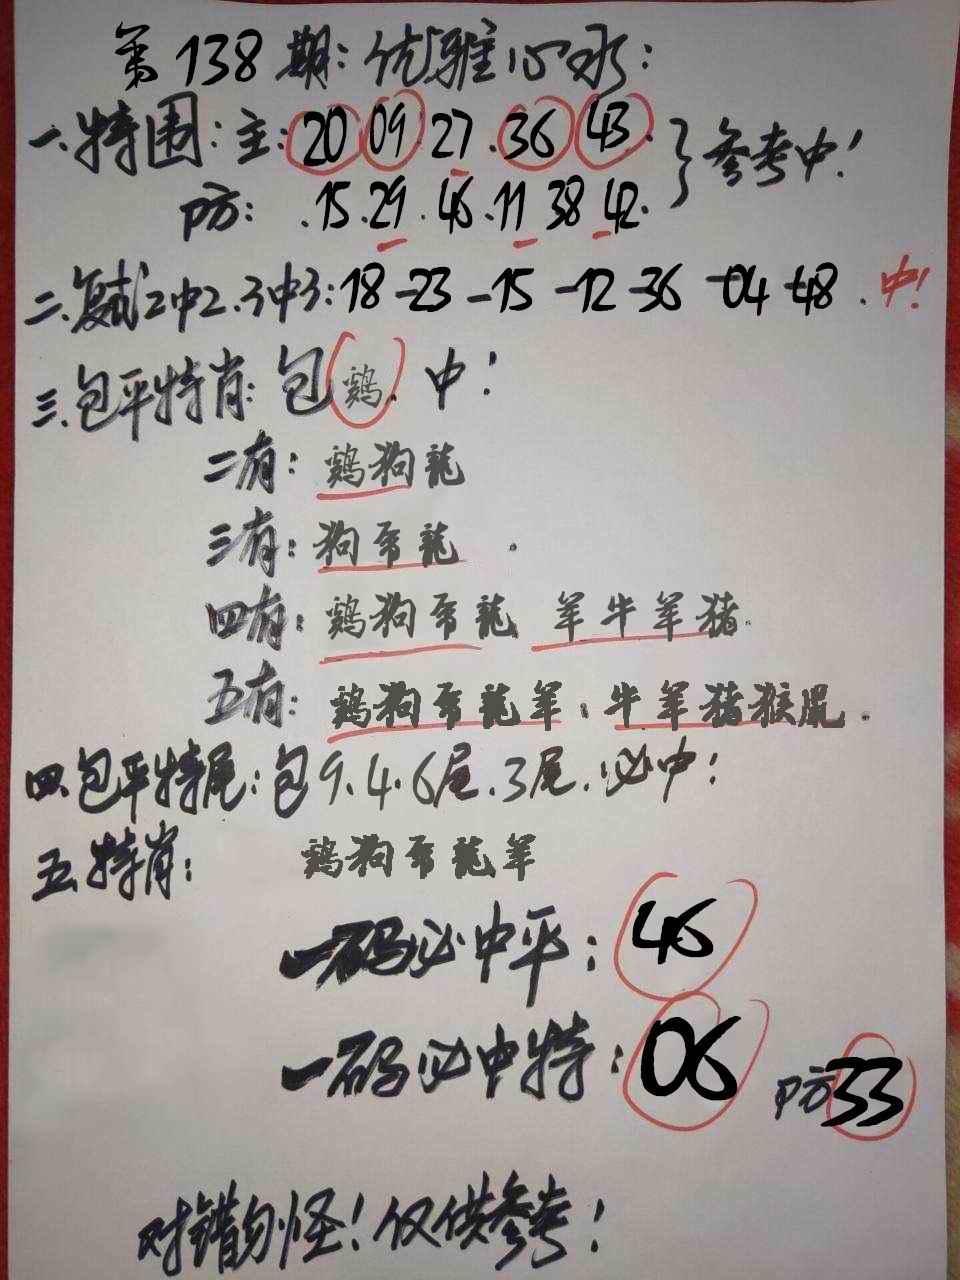 第138期:优雅心水:
一.特围:主:20 09.27.36 43. 参考中!
防:.15.29.46.11 38 42.
二.复式2中2.3中3:18-23-15-12-36-04-48.中!
三.包平特肖:包鸡.中!
二有:鸡狗龍
三有:狗帝龍.
四有:鸡狗帝龍 羊牛羊猪.
五有:鸡狗帝龍羊.牛羊猪猴鼠.
四.包平特尾:包9.4.6尾.3尾.必中!
五.特肖: 鸡狗帝龍羊
一码必中平:46
一码必中特:06 防33
对错勿怪!仅供参考!